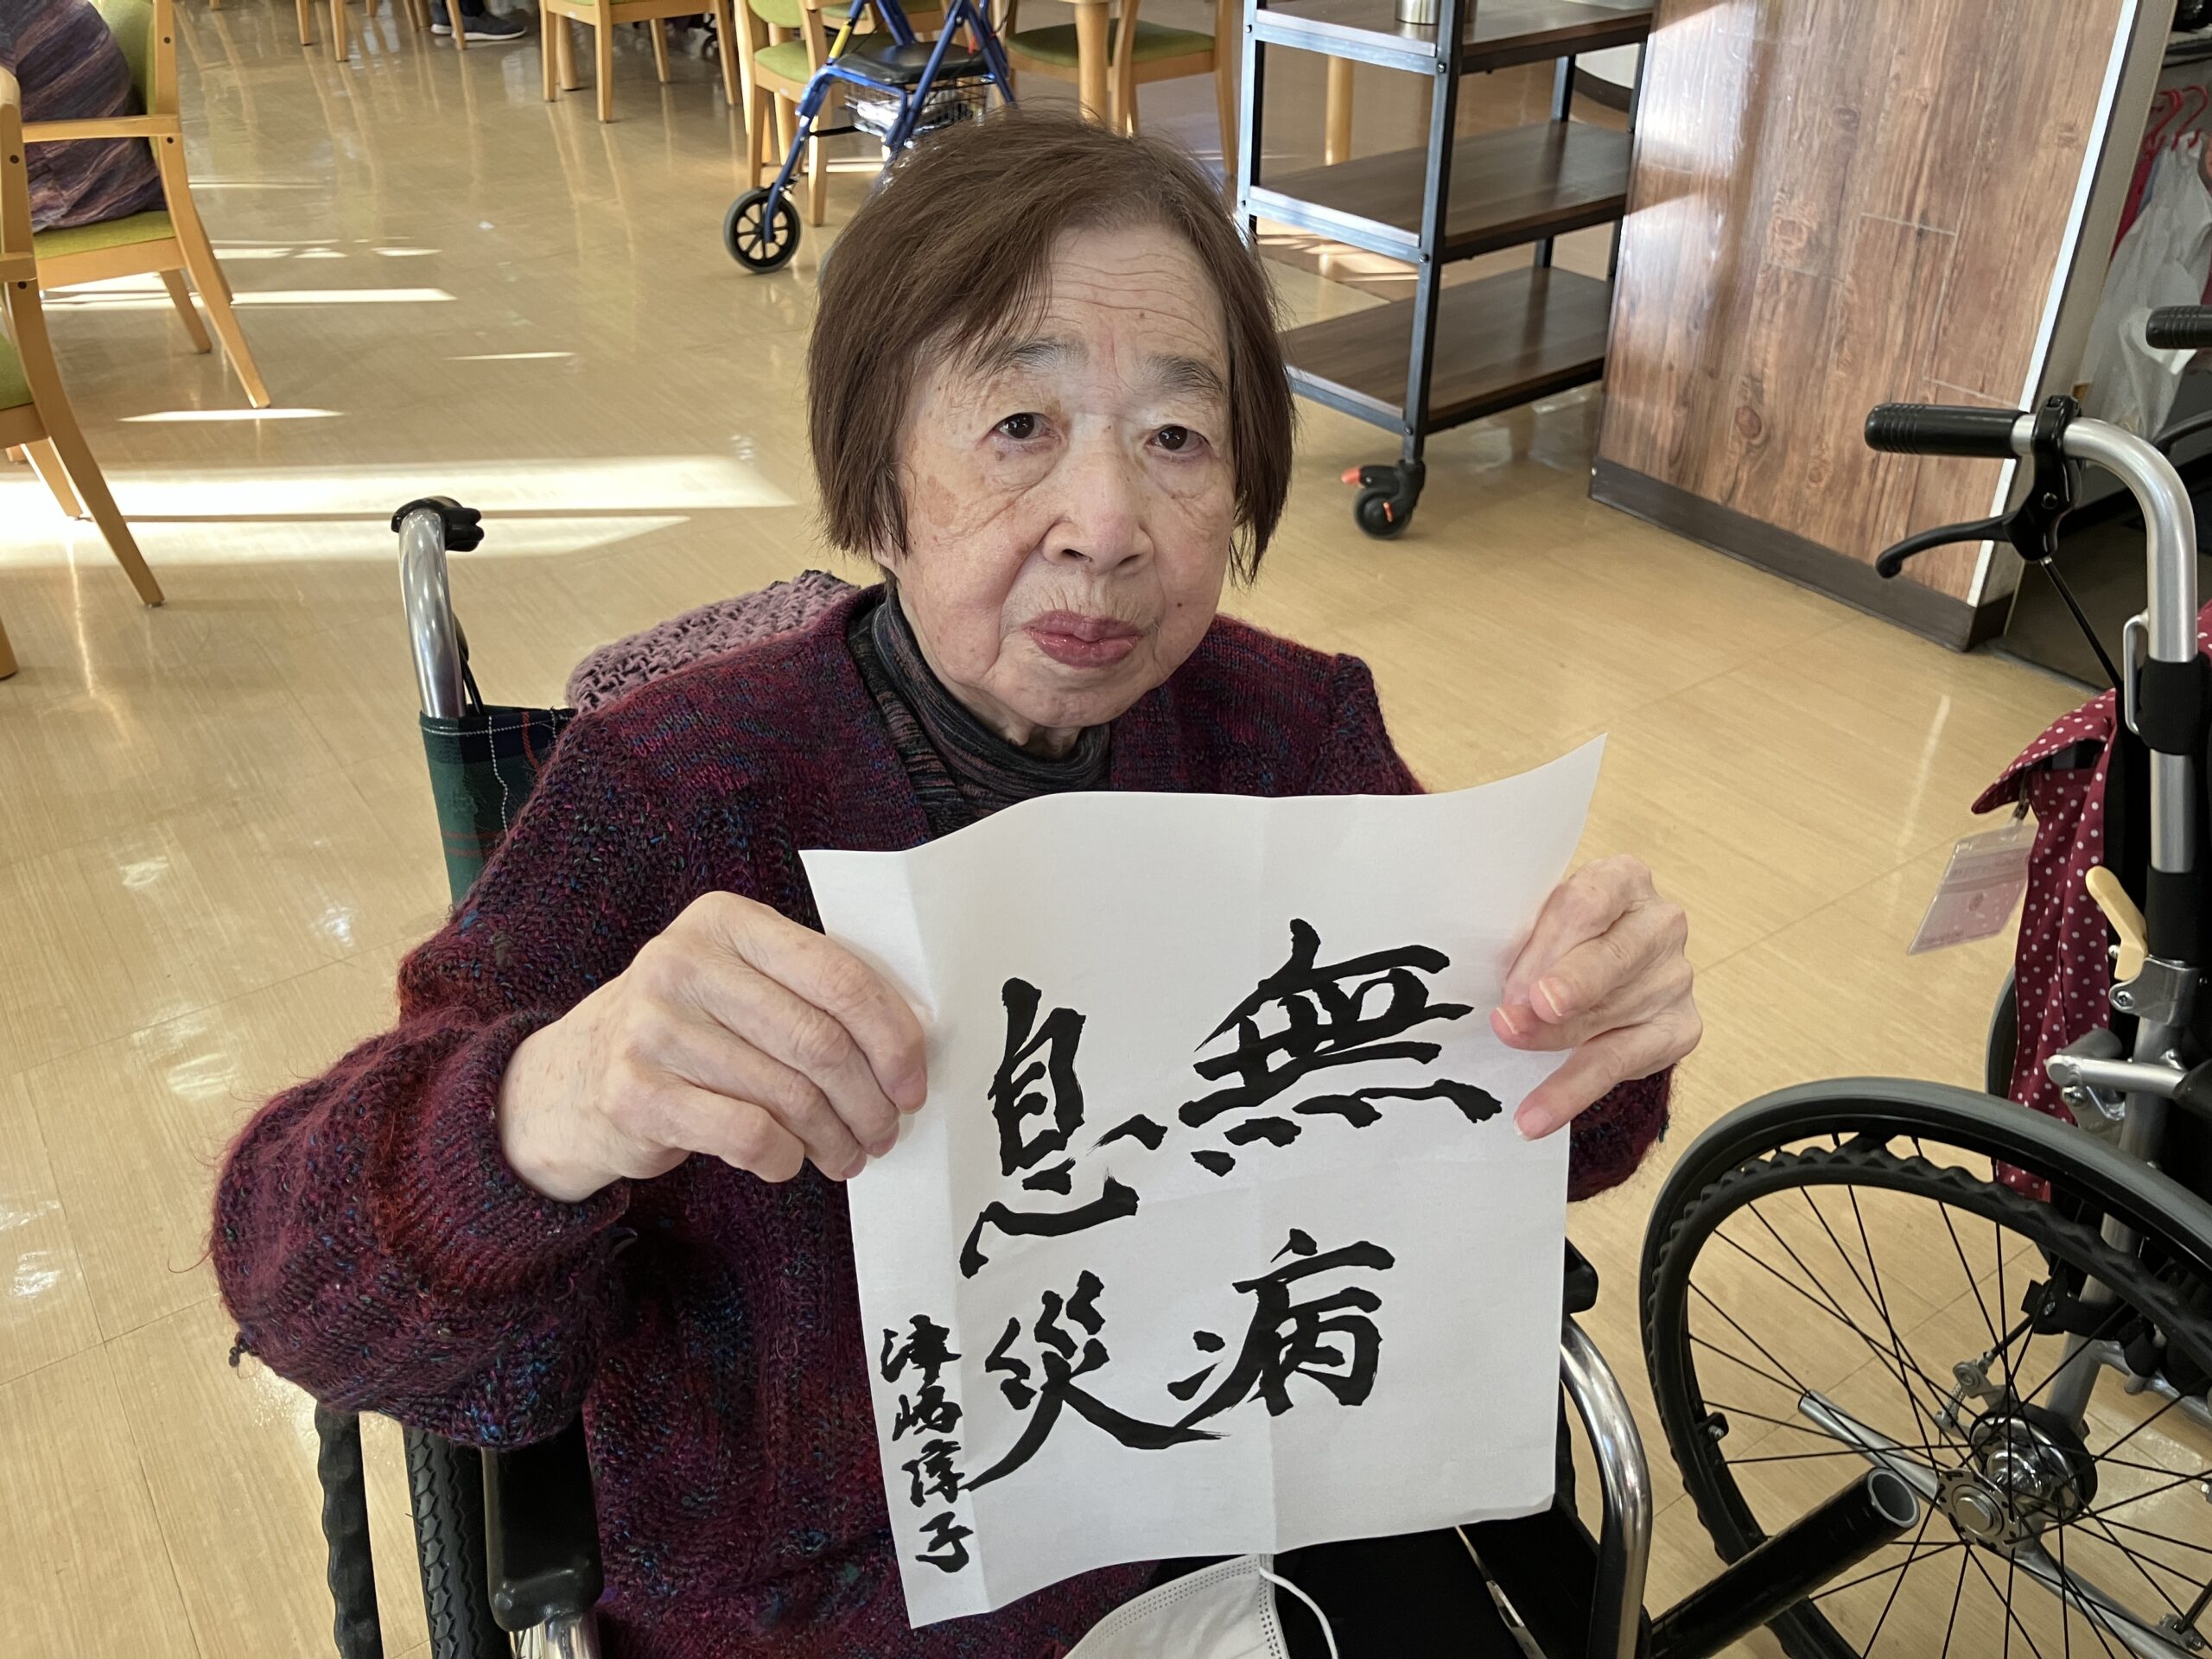 無病
息災
津嶋淳子